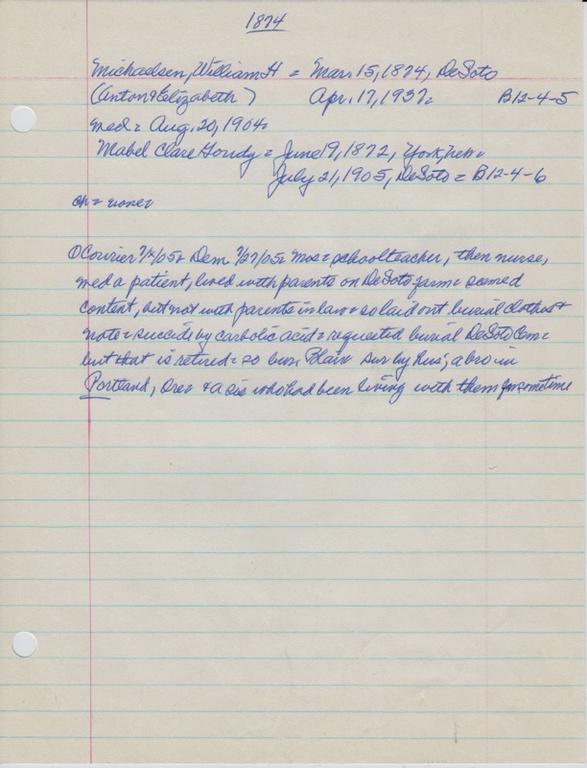 1874
Michaelsen, William H = Mar. 15, 1874, DeSoto
(Anton & Elizabeth) Apr. 17, 1937 = B12-4-5
med = Aug. 20, 1904 =
Mabel Clare Goudy = June 19, 1872, York, Neb =
July 21, 1905, DeSoto = B12-4-6
ch = none =
Courier & Dem 7/27/05 = schoolteacher, then nurse,
med a patient, lived with parents on DeSoto farm = seemed
content, but not with parents in law = so laid out burial clothes +
note = suicide by carbolic acid = requested burial DeSoto Cem =
but that is retired = so bur. Blair Sur by hus; a bro in
Portland, Ore = & a sis who had been living with them for sometime